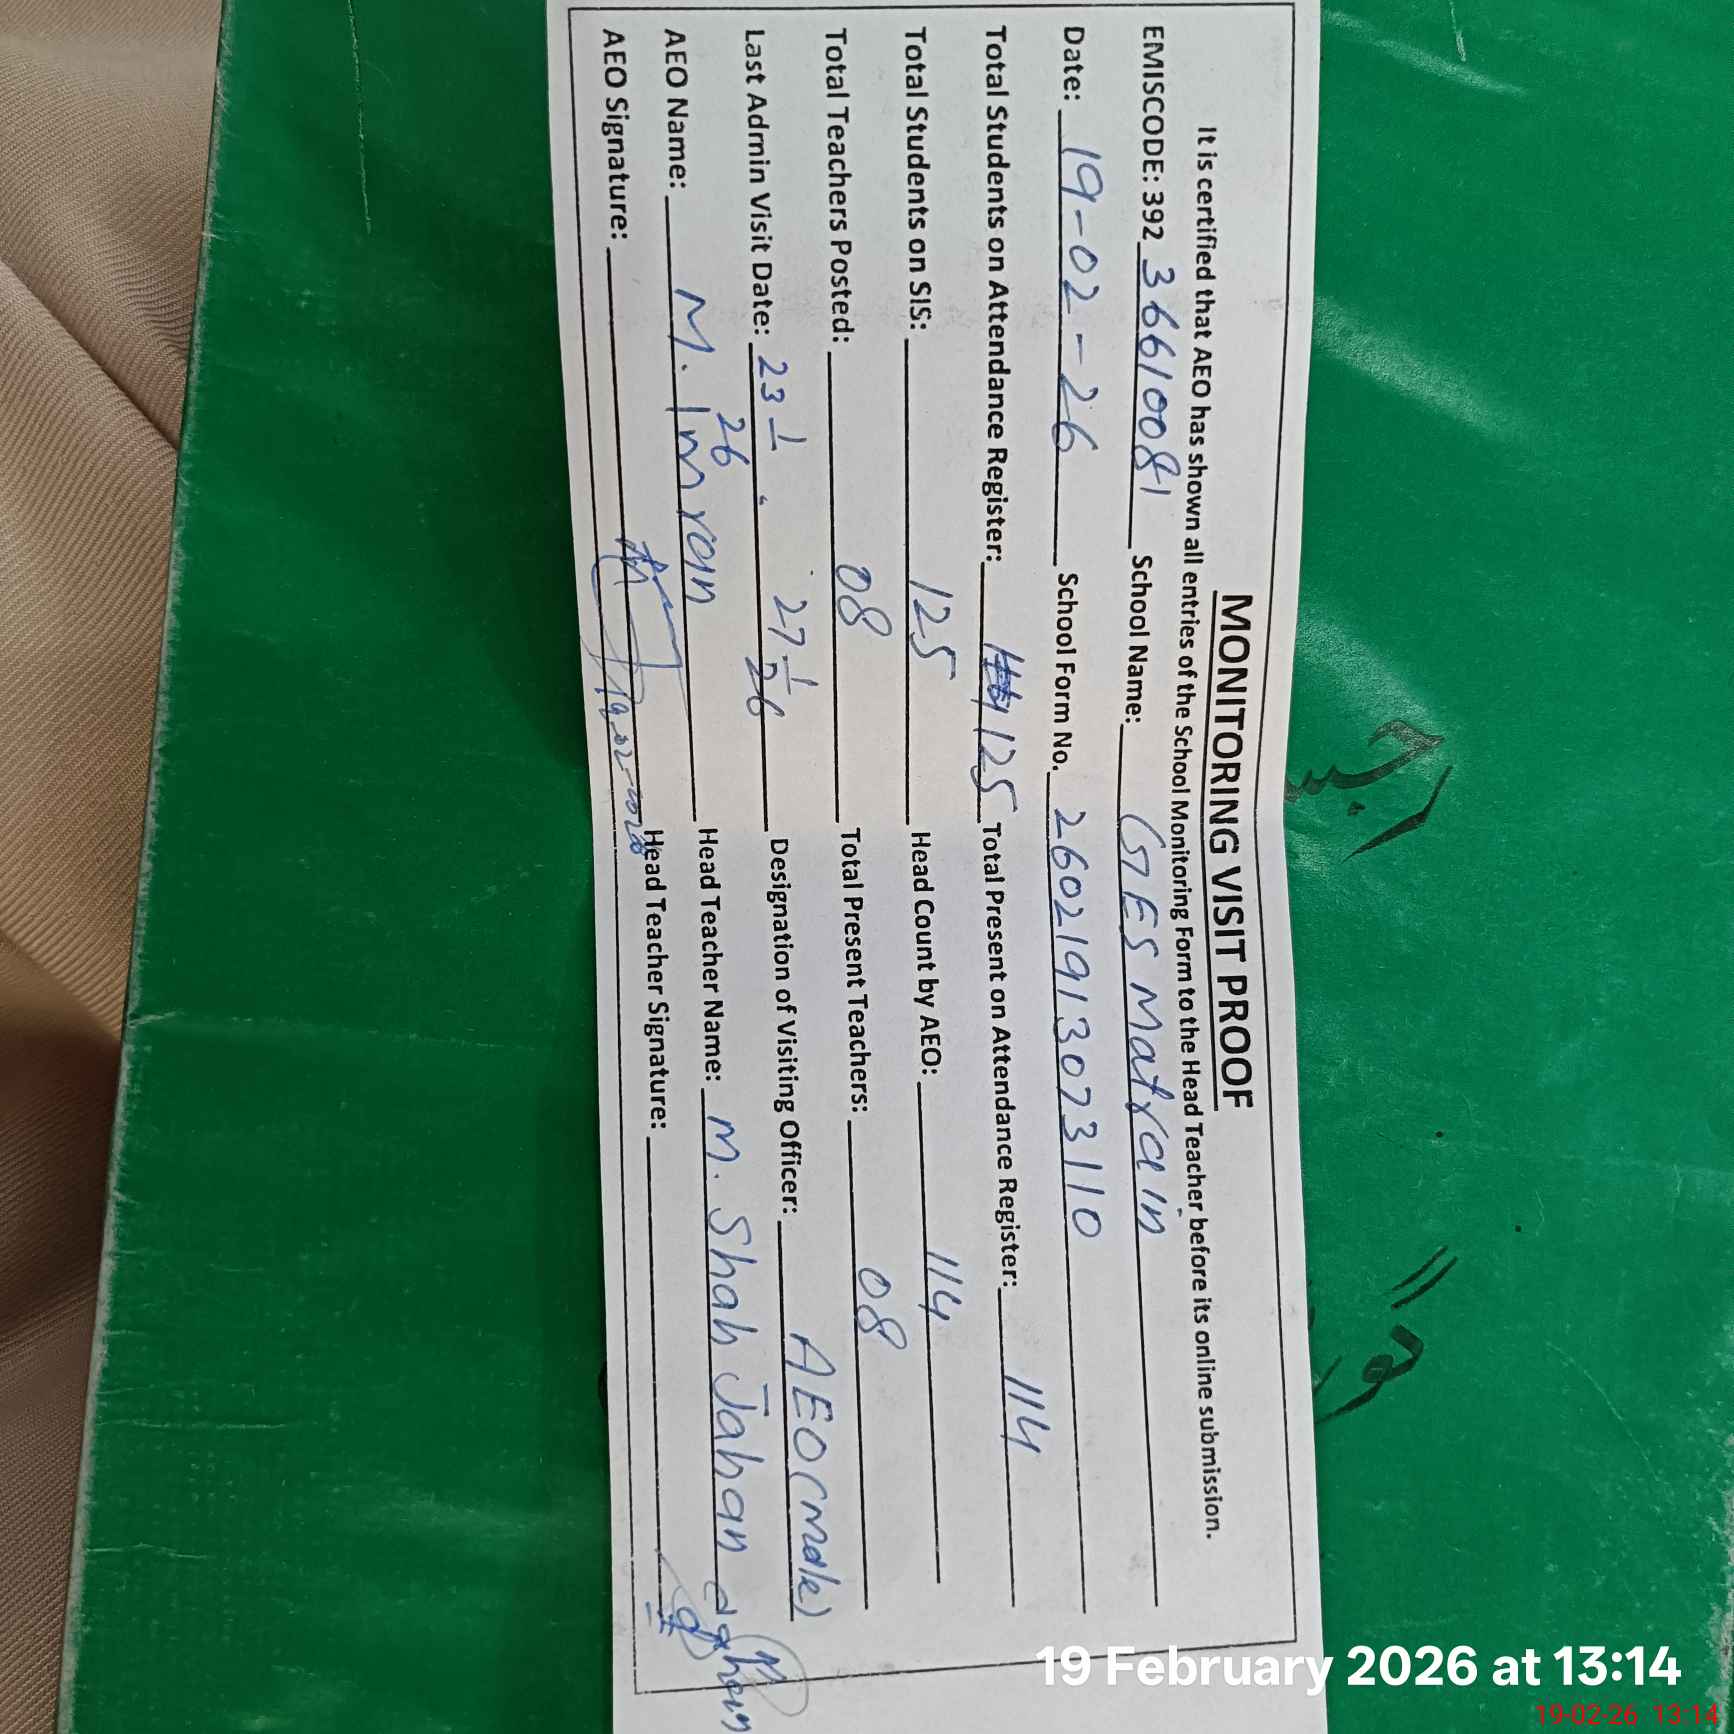 MONITORING VISIT PROOF
It is certified that AEO has shown all entries of the School Monitoring Form to the Head Teacher before its online submission.
EMISCODE: 392 36610081 School Name: GES Matrain
Date: 19-02-26 School Form No. 26021913073110
Total Students on Attendance Register: 125 Total Present on Attendance Register: 114
Total Students on SIS: 125 Head Count by AEO: 114
Total Teachers Posted: 08 Total Present Teachers: 08
Last Admin Visit Date: 23 1/26 . 27 1/26 Designation of Visiting Officer: AEO (male)
AEO Name: M. Imran Head Teacher Name: M. Shah Jahan
AEO Signature: 19-02-2026 Head Teacher Signature:
19 February 2026 at 13:14
19-02-26 13:14